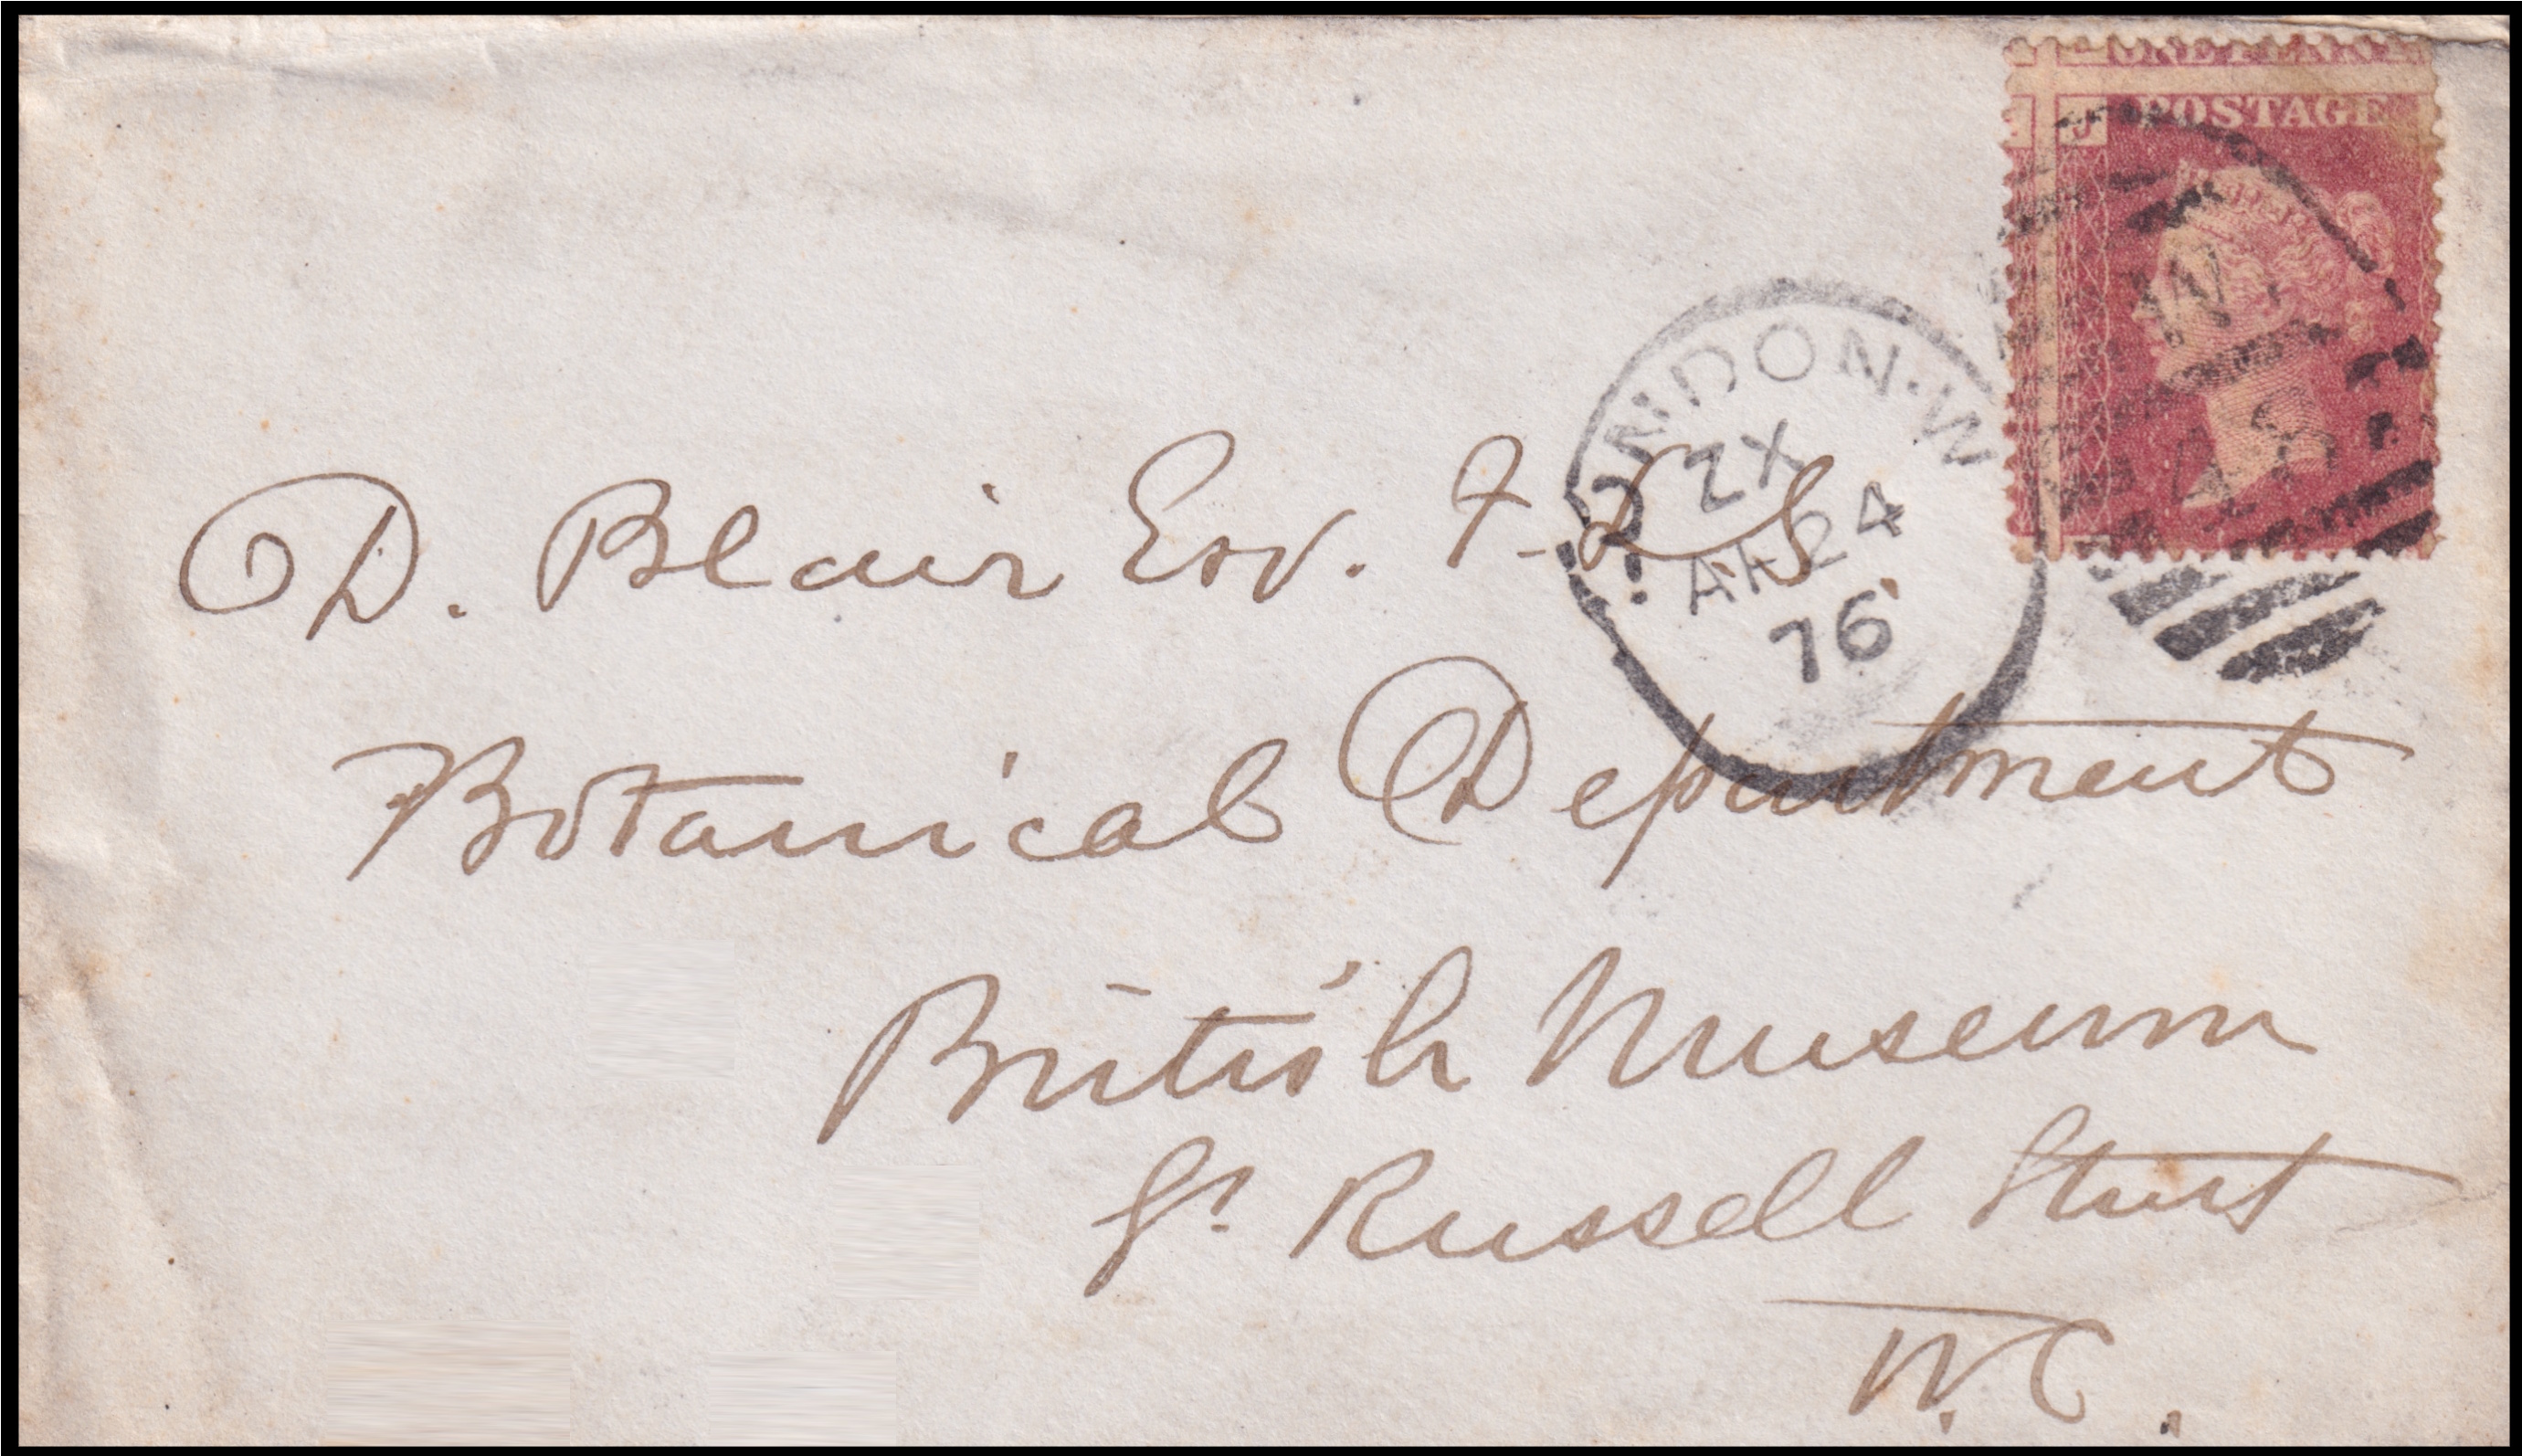 ONE PENNY
POSTAGE
J
LONDON·W
ZX
AP 24
76
W
48
D. Blair Esq. F.L.S
Botanical Department
British Museum
Gt Russell Street
W.C.